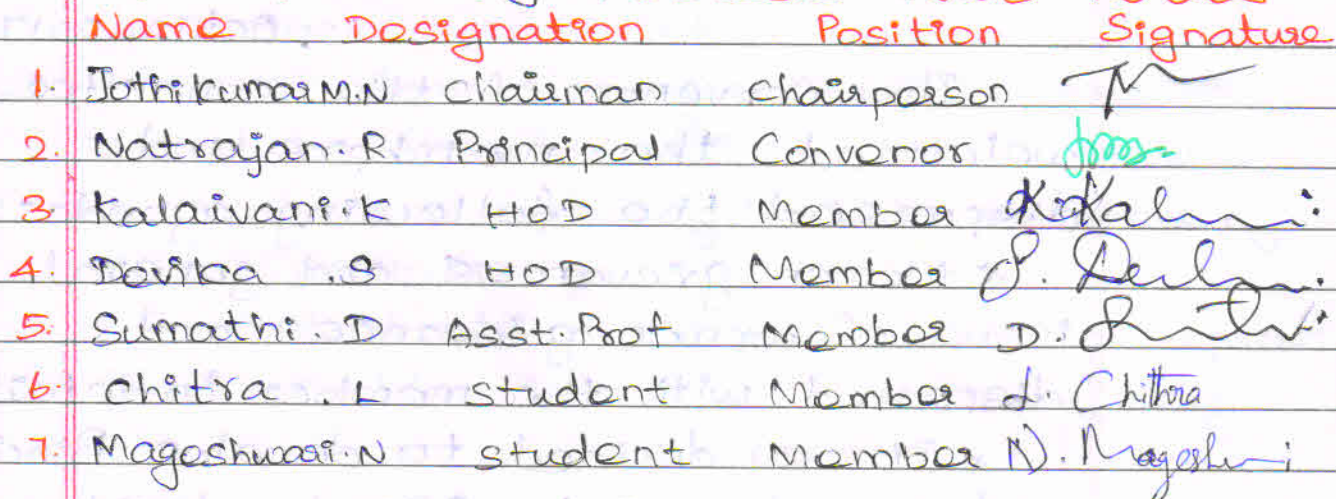 Name Designation Position Signature
1. Jothikumar M.N Chairman Chairperson
2. Natrajan. R Principal Convenor
3. Kalaivani. K HOD Member K. Kal
4. Devika .S HOD Member S. De
5. Sumathi. D Asst. Prof Member D.
6. Chitra . L Student Member L. Chithra
7. Mageshwari. N Student Member N. Mageshwari